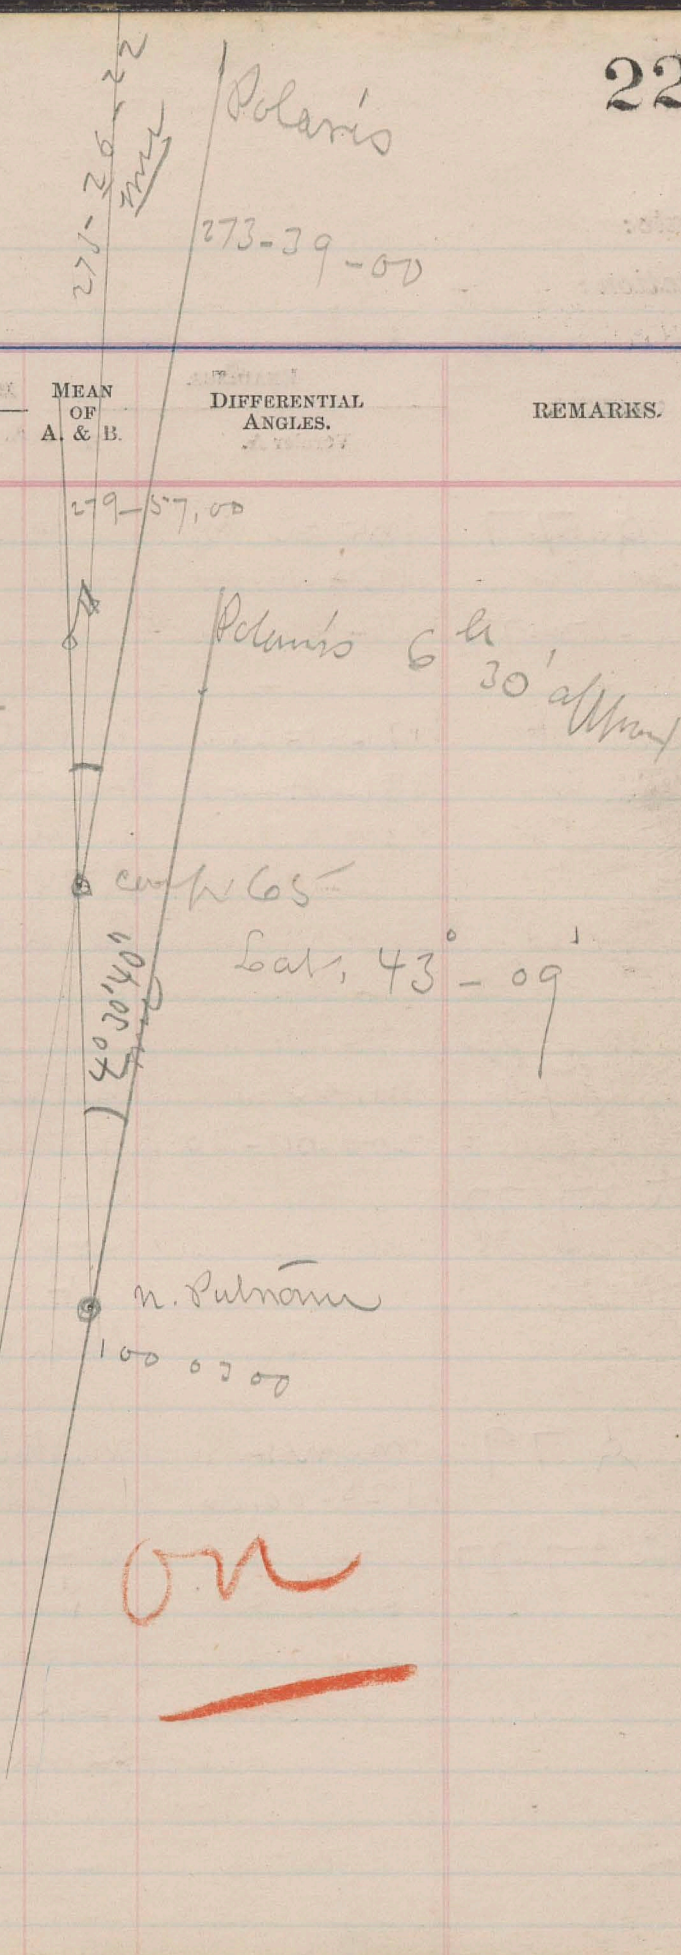 22
Polaris
273-39-00
MEAN OF A. & B.
DIFFERENTIAL ANGLES.
REMARKS.
279-57,00
Polaris 6h 30' approx
65
Lat, 43° - 09'
4° 30' 40"
N. Putnam
100 03 00
on